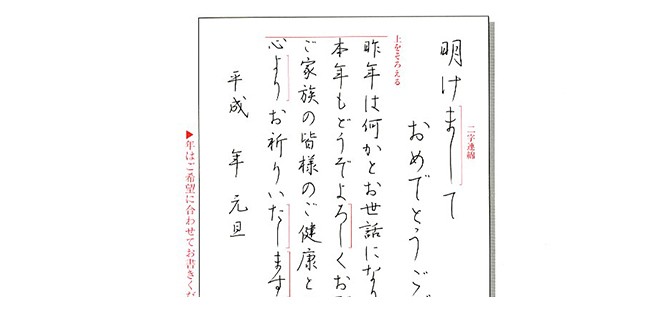 明けまして
おめでとうご
昨年は何かとお世話にな
本年もどうぞよろしくお
ご家族の皆様のご健康と
心よりお祈りいたします
平成　年　元旦
二字連綿
上をそろえる
▶年はご希望に合わせてお書きくだ